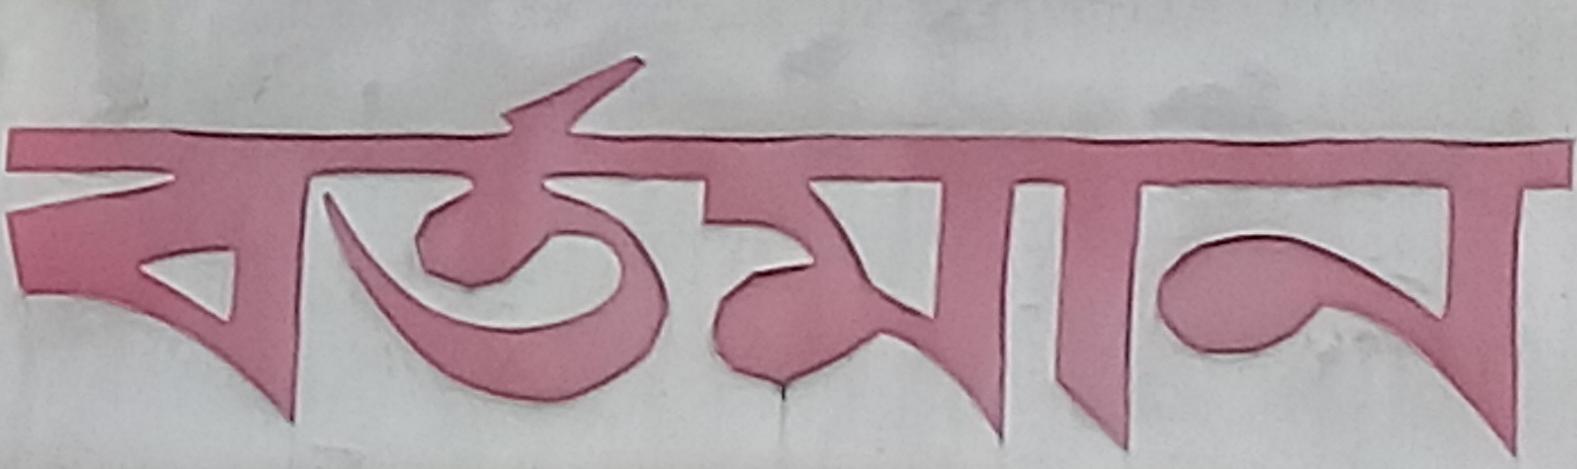 বর্তমান